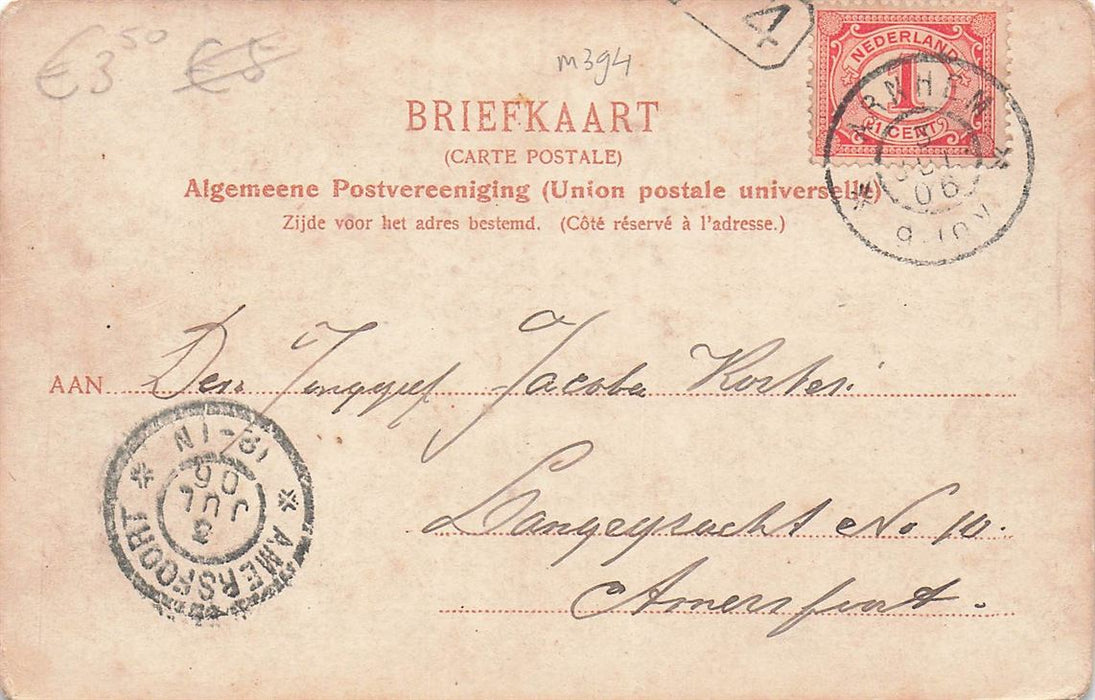 €3⁵⁰ €5
m394
4
NEDERLAND
1
1 CENT
ARNHEM
3
JUL
06
9-10V
BRIEFKAART
(CARTE POSTALE)
Algemeene Postvereeniging (Union postale universelle)
Zijde voor het adres bestemd. (Côté réservé à l'adresse.)
AAN Den Jacoba Koster
Langegracht No 10.
Amersfoort.
AMERSFOORT
3
JUL
06
12-1N